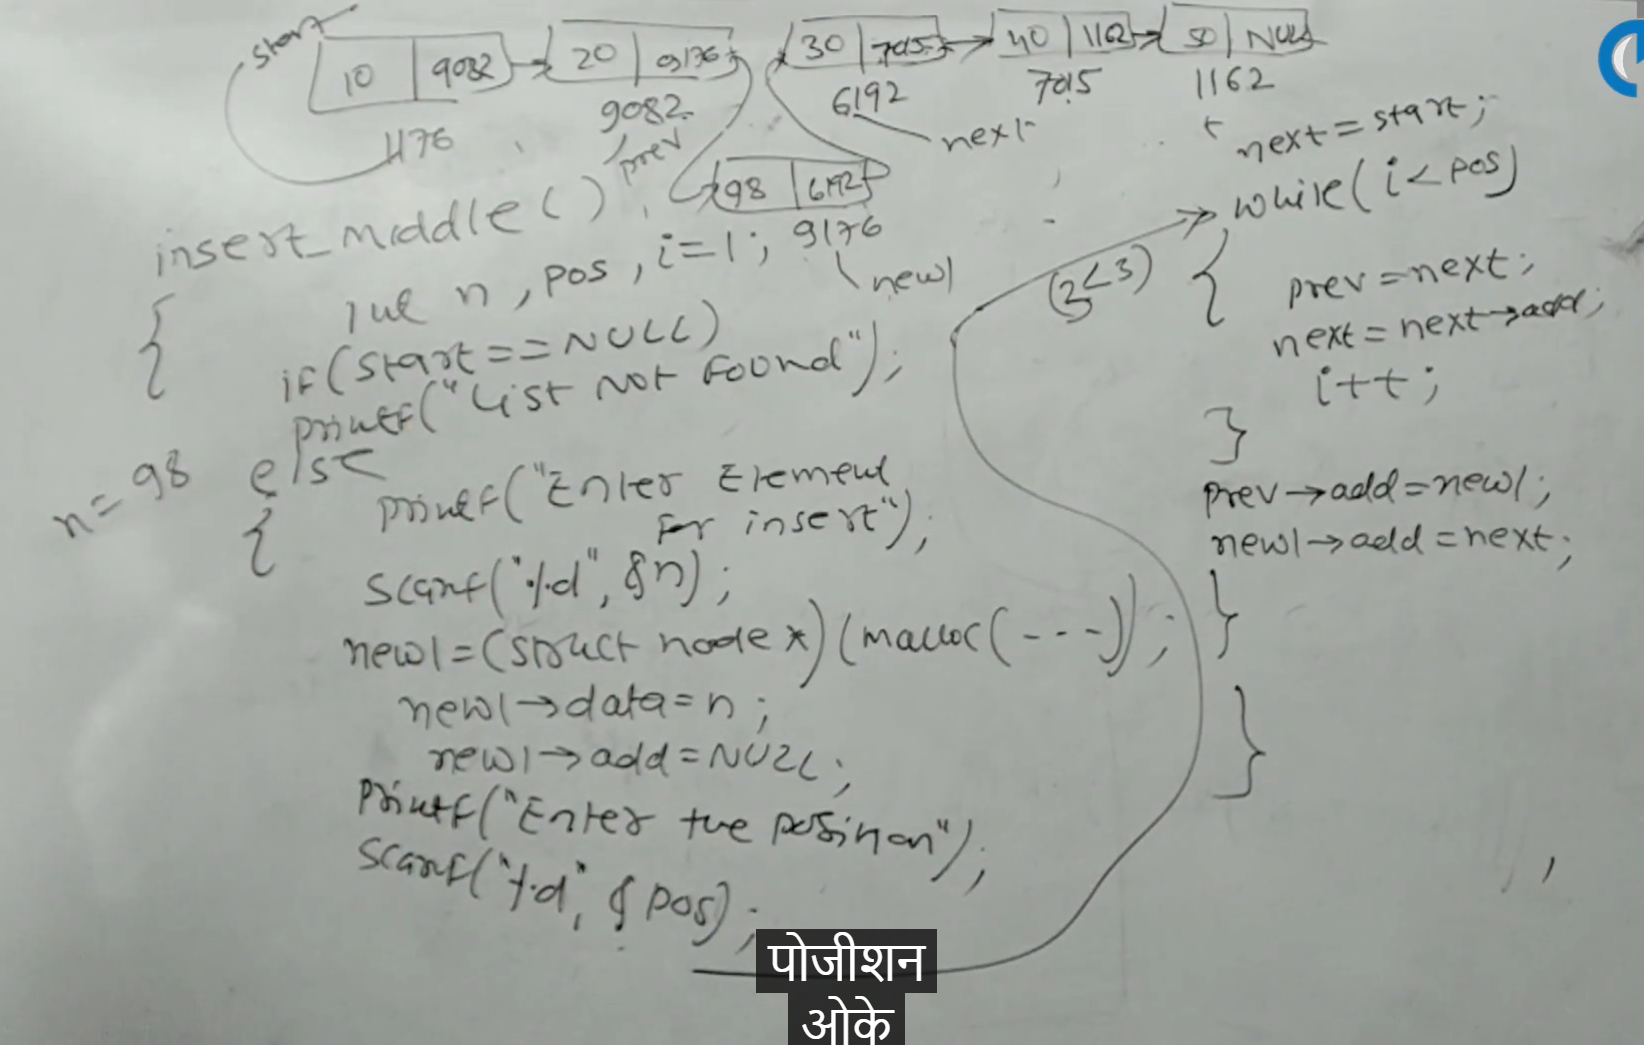 start
10 9082 20 9176 30 7015 40 1162 50 NULL
1176 9082 6192 7015 1162
prev next
98 6192
9176
new1
insert_middle()
{
int n, pos, i=1;
if(start==NULL)
printf("List Not Found");
else
n=98
{
printf("Enter Element
for insert");
scanf("%d", &n);
new1=(struct node*)(malloc(---));
new1→data=n;
new1→add=NULL;
printf("Enter the position");
scanf("%d", &pos);
next=start;
while(i<pos)
(3<3)
{
prev=next;
next=next→add;
i++;
}
prev→add=new1;
new1→add=next;
}
}
पोजीशन
ओके